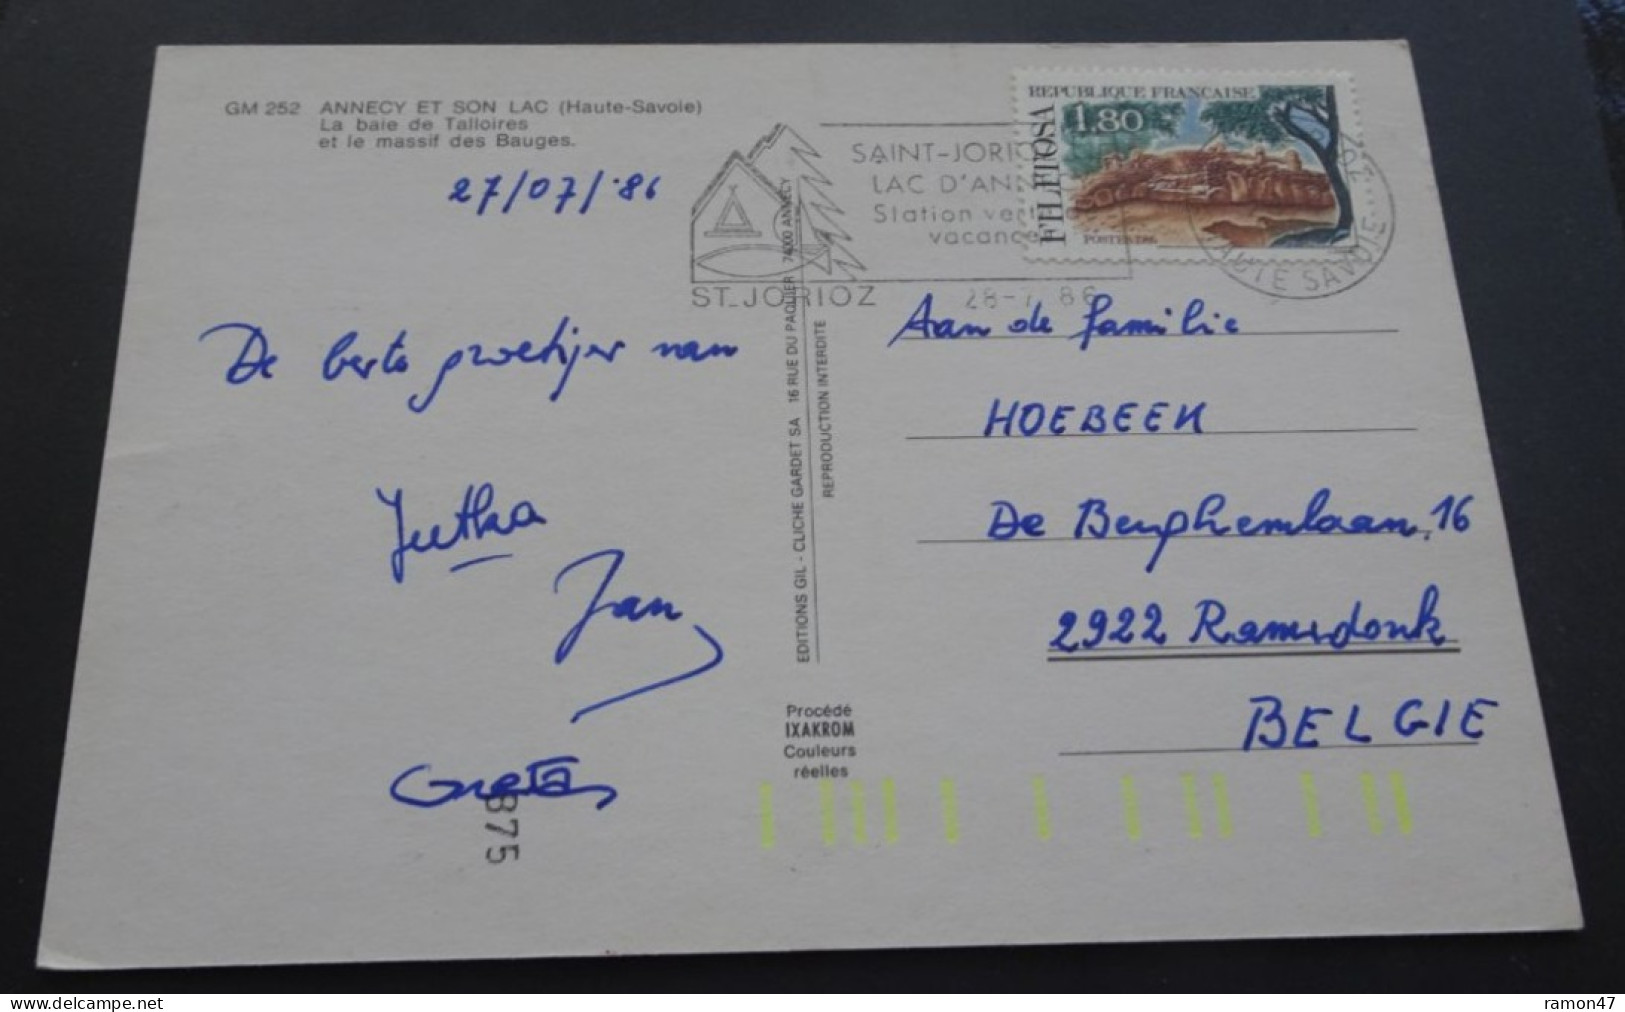 GM 252 ANNECY ET SON LAC (Haute-Savoie)
La baie de Talloires
et le massif des Bauges.
27/07/'86
De beste groetjes van
Jutka
Jan
Greta
875
ST-JORIOZ
SAINT-JORIO
LAC D'ANN
Station vert
vacance
28-7 86
HAUTE SAVOIE
REPUBLIQUE FRANÇAISE
1,80
FILITOSA
POSTES 1986
EDITIONS GIL - CLICHE GARDET SA 16 RUE DU PAQUIER 74000 ANNECY
REPRODUCTION INTERDITE
Procédé
IXAKROM
Couleurs
réelles
Aan de familie
HOEBEEK
De 16
2922 Ramsdonk
BELGIE
www.delcampe.net
ramon47